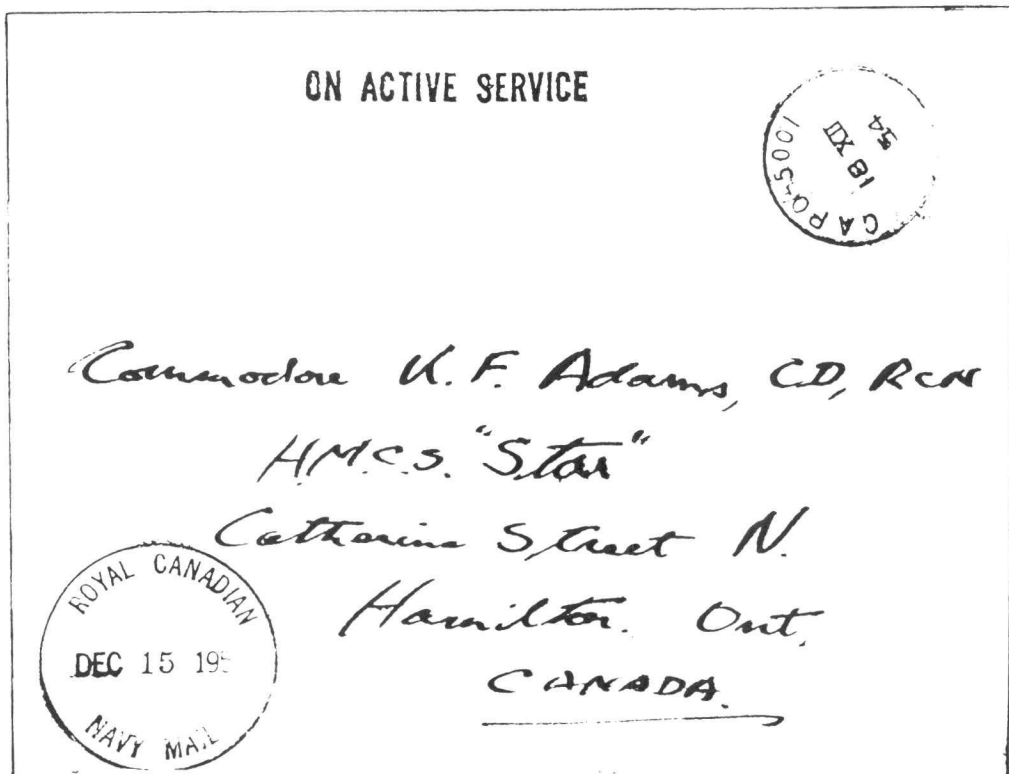 ON ACTIVE SERVICE
CAPO-5001
18 XII
54
Commodore K.F. Adams, CD, RCN
H.M.C.S. "Star"
Catharine Street N.
Hamilton. Ont.
CANADA.
ROYAL CANADIAN
DEC 15 195
NAVY MAIL